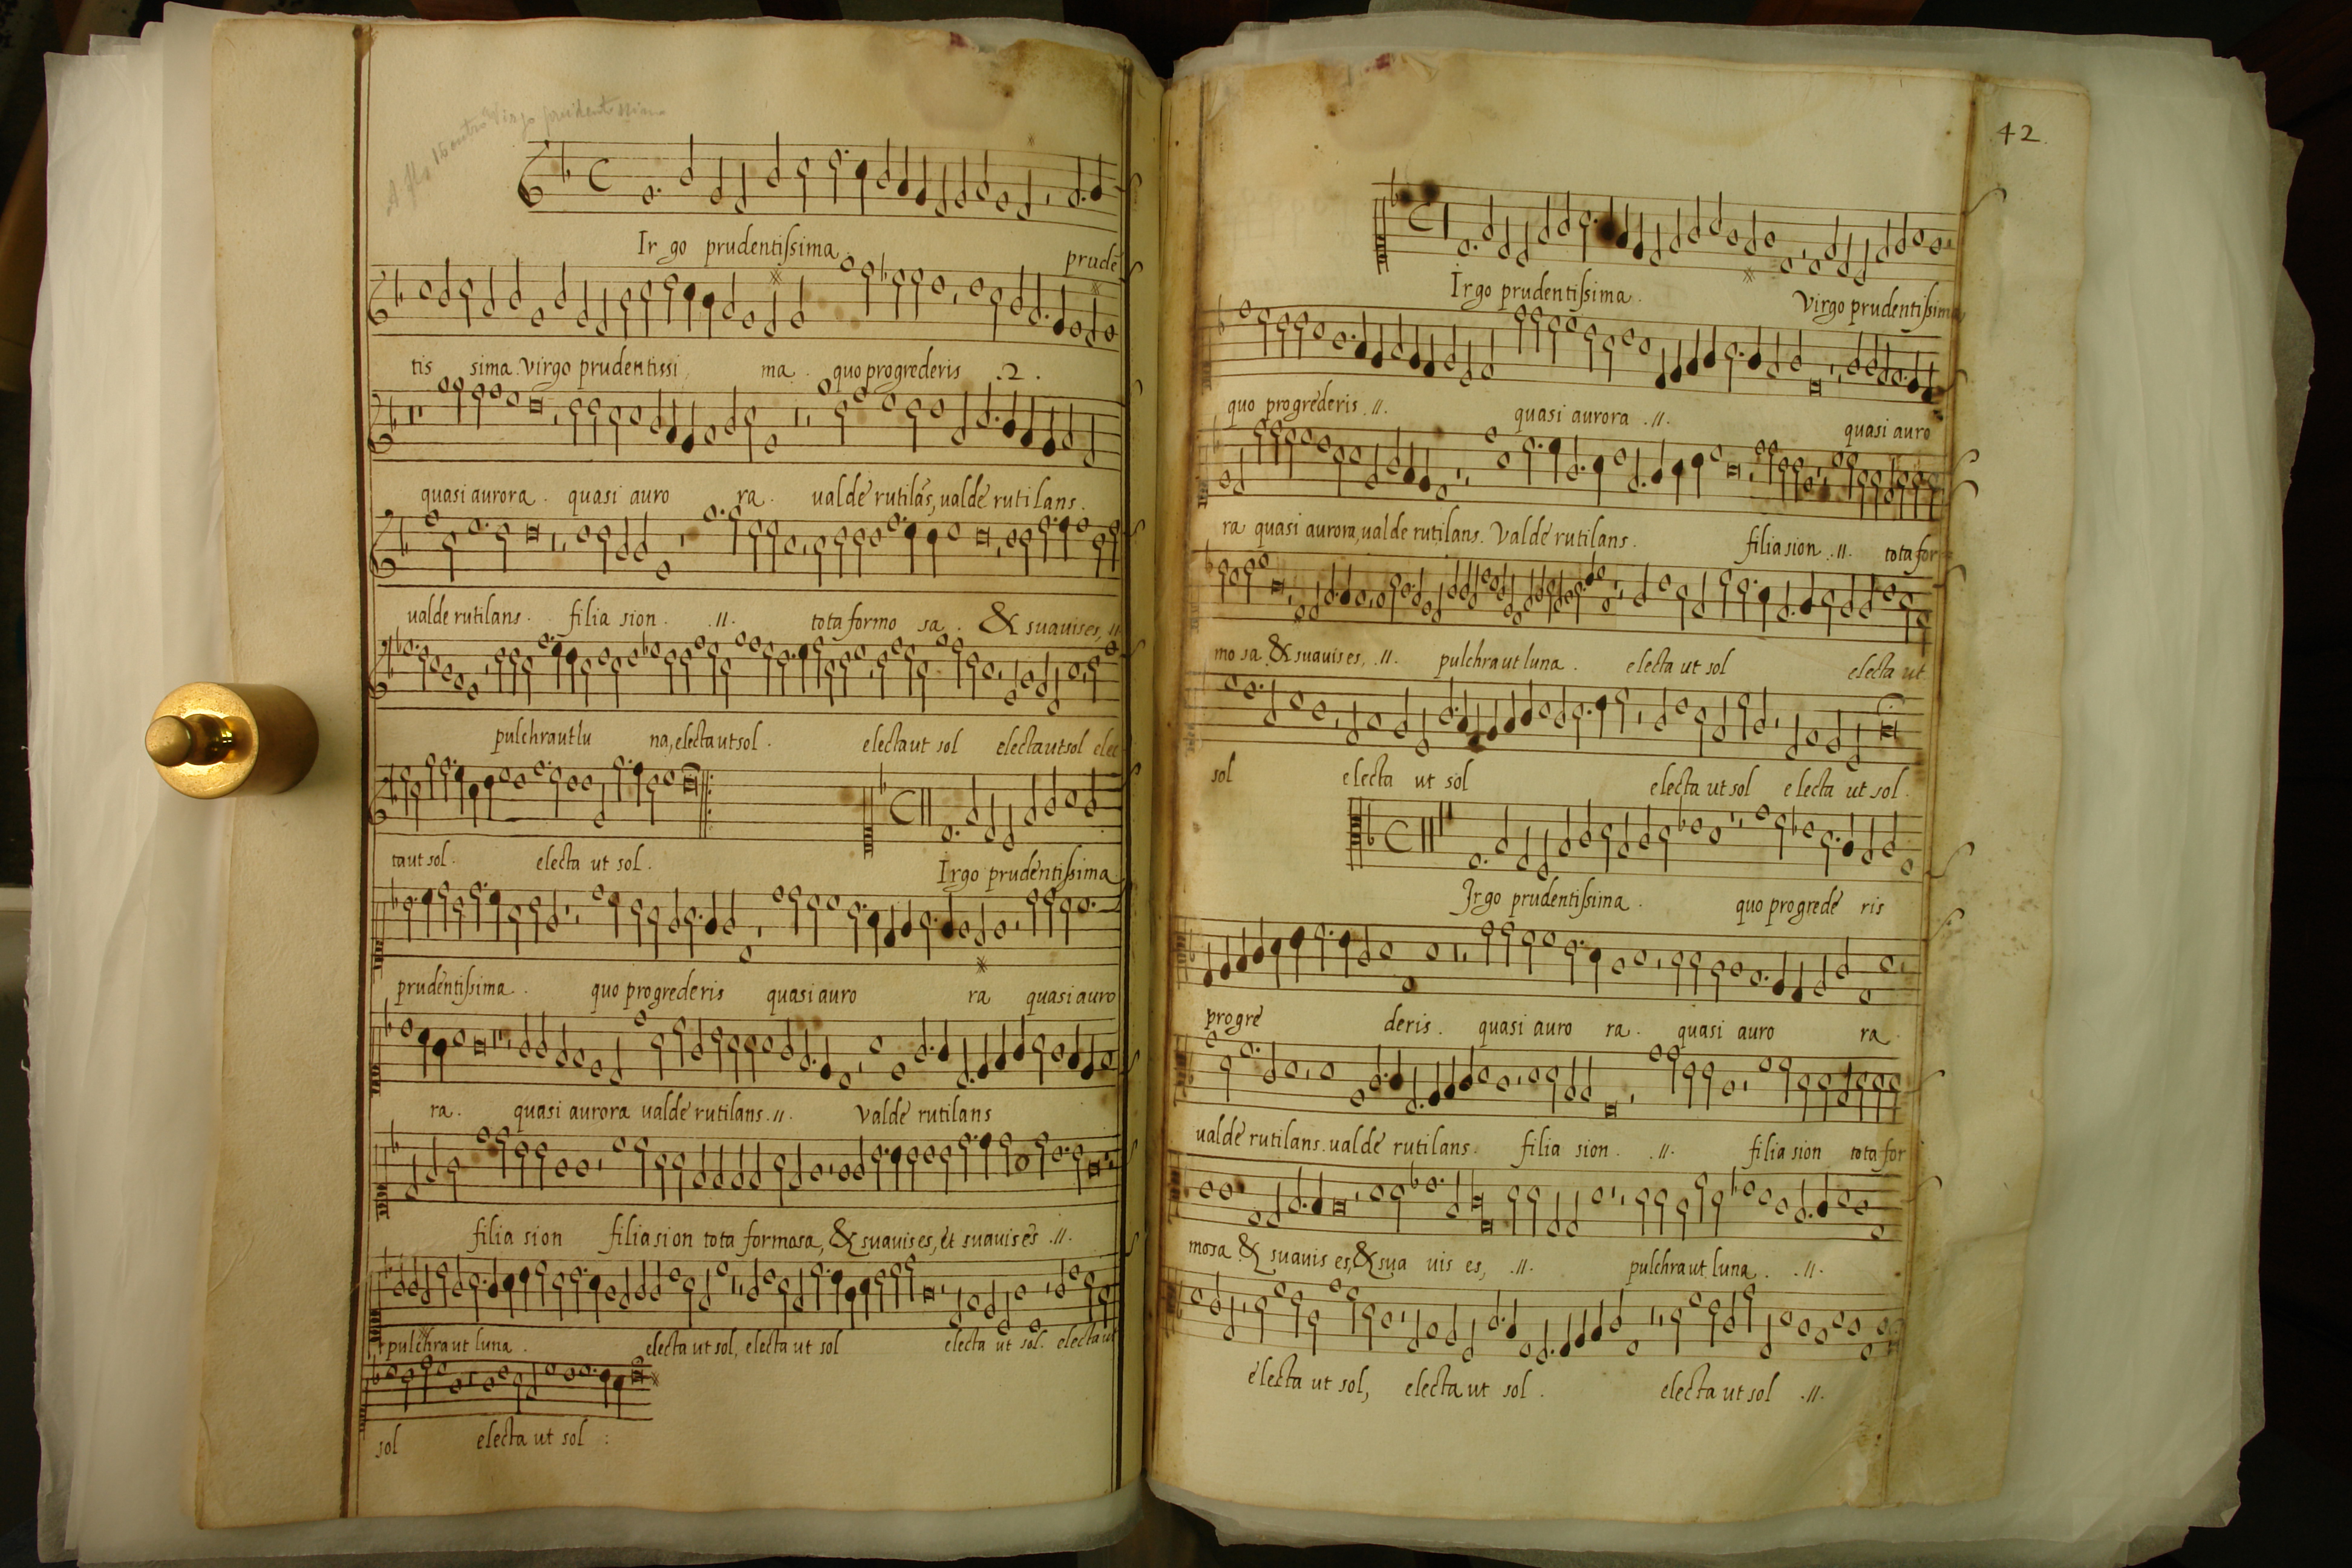 A fls 15 outro Virgo prudentissima
Ir go prudentissima prudē
tis sima. Virgo prudentissi ma. quo progrederis .2.
quasi aurora. quasi auro ra. ualde rutilās, ualde rutilans.
ualde rutilans. filia sion. .II. tota formo sa. & suauis es, II
pulchra ut lu na, electa ut sol. electa ut sol electa ut sol elec
ta ut sol. electa ut sol.
Irgo prudentissima
prudentissima. quo progrederis quasi auro ra quasi auro
ra. quasi aurora ualde rutilans .II. Valde rutilans
filia sion filia sion tota formosa, & suauis es, et suauis es .II.
pulchra ut luna. electa ut sol, electa ut sol electa ut sol. electa ut
sol electa ut sol :
42.
Irgo prudentissima. Virgo prudentissima
quo progrederis .II. quasi aurora .II. quasi auro
ra quasi aurora, ualde rutilans. Valde rutilans. filia sion .II. tota for
mo sa. & suauis es, .II. pulchra ut luna. electa ut sol electa ut
sol electa ut sol electa ut sol electa ut sol.
Irgo prudentissima. quo progrede ris
progre deris. quasi auro ra. quasi auro ra
ualde rutilans. ualde rutilans. filia sion. .II. filia sion tota for
mosa & suauis es, & sua uis es, .II. pulchra ut luna. .II.
electa ut sol, electa ut sol. electa ut sol .II.